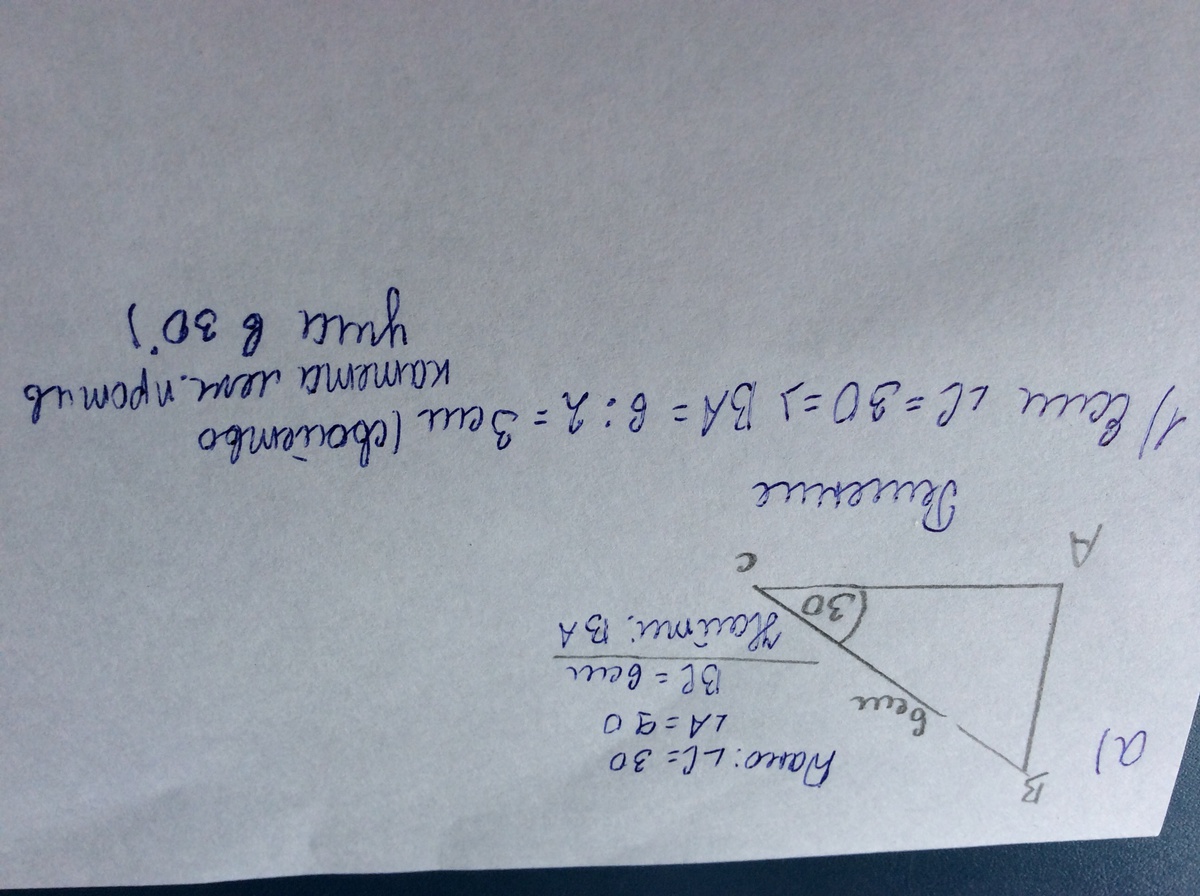 а)
B
6см
30
C
A
Дано: ∠C = 30
∠A = 90
BC = 6см
Найти: BA
Решение
1) Если ∠C = 30 => BA = 6 : 2 = 3см (свойство
катета леж. против
угла в 30°)